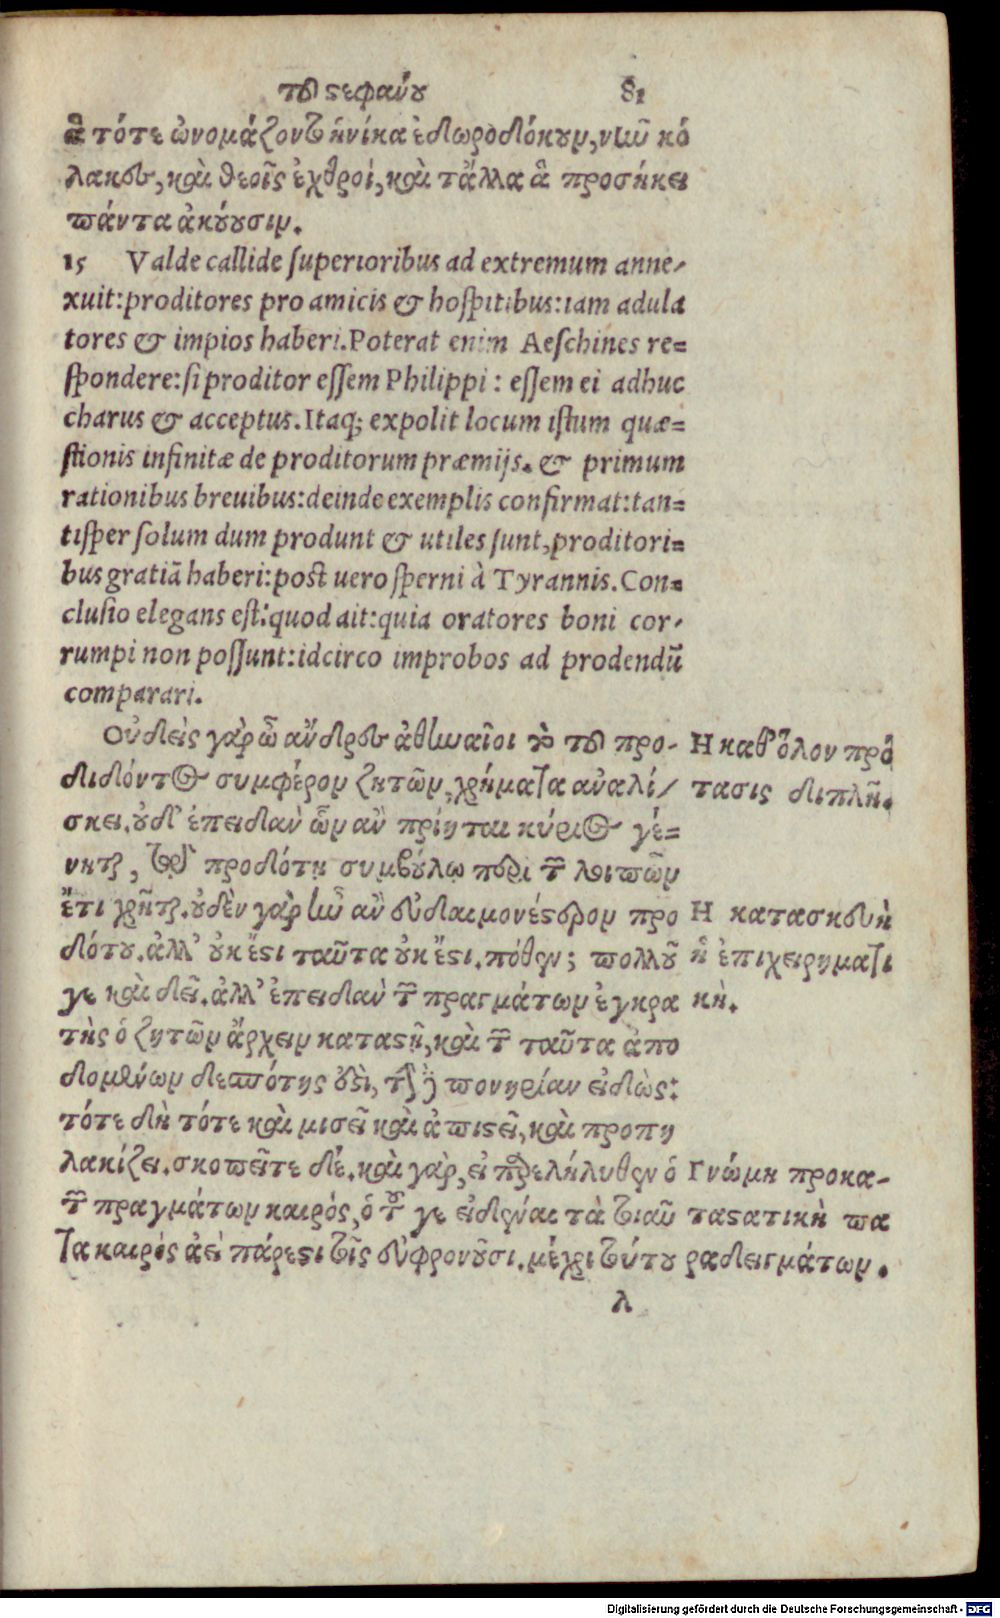 τοῦ στεφάνου 81
ἃ τότε ὠνομάζοντο ἡνίκα ἐδωροδόκουν, νῦν κό
λακες, καὶ θεοῖς ἐχθροί, καὶ τἄλλα ἃ προσήκει
πάντα ἀκούουσιν.
15 Valde callide superioribus ad extremum anne-
xuit: proditores pro amicis & hospitibus: iam adula
tores & impios haberi. Poterat enim Aeschines re=
spondere: si proditor essem Philippi: essem ei adhuc
charus & acceptus. Itaq; expolit locum istum quæ=
stionis infinitæ de proditorum præmijs. & primum
rationibus breuibus: deinde exemplis confirmat: tan=
tisper solum dum produnt & utiles sunt, proditori=
bus gratiā haberi: post uero sperni à Tyrannis. Con=
clusio elegans est: quod ait: quia oratores boni cor-
rumpi non possunt: idcirco improbos ad prodendū
comparari.
Οὐδεὶς γὰρ ὦ ἄνδρες ἀθηναῖοι τὸ τοῦ προ-
διδόντος συμφέρον ζητῶν, χρήματα ἀναλί-
σκει. οὐδ' ἐπειδὰν ὧν ἂν πρίηται κύριος γέ=
νηται, τῷ προδότῃ συμβούλῳ περὶ τῶν λοιπῶν
ἔτι χρῆται. οὐδὲν γὰρ ἦν ἂν εὐδαιμονέστερον προ
δότου. ἀλλ' οὐκ ἔστι ταῦτα οὐκ ἔστι. πόθεν; πολλοῦ
γε καὶ δεῖ. ἀλλ' ἐπειδὰν τῶν πραγμάτων ἐγκρα
τὴς ὁ ζητῶν ἄρχειν καταστῇ, καὶ τῶν ταῦτα ἀπο
δομένων δεσπότης ἐστὶ, τὴν πονηρίαν εἰδὼς:
τότε δὴ τότε καὶ μισεῖ καὶ ἀπιστεῖ, καὶ προπη
λακίζει. σκοπεῖτε δέ. καὶ γὰρ, εἰ παρελήλυθεν ὁ
τῶν πραγμάτων καιρός, ὁ τοῦ γε εἰδέναι τὰ τοιαῦ
τα καιρὸς ἀεὶ πάρεστι τοῖς εὐφρονοῦσι. μέχρι τούτου
λ
Η καθ' ὅλον πρό
τασις διπλῆ.
Η κατασκευὴ
ἡ ἐπιχειρηματι
κή.
Γνώμη προκα-
ταστατικὴ πα
ραδειγμάτων.
Digitalisierung gefördert durch die Deutsche Forschungsgemeinschaft - DFG